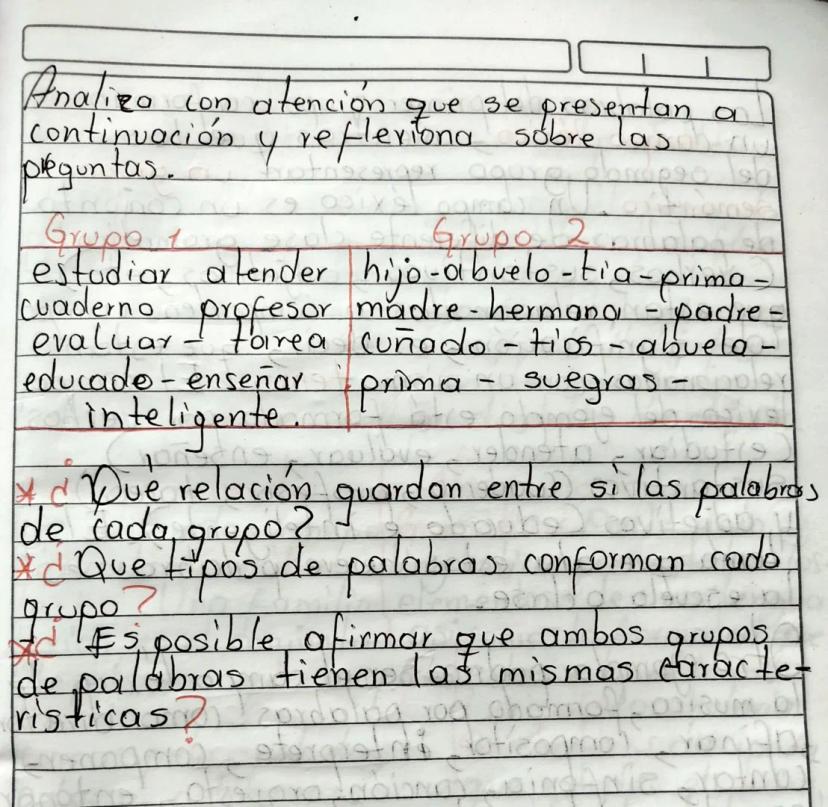 Analiza con atención que se presentan a
continuación y reflexiona sobre las
preguntas.
Grupo 1 Grupo 2
estudiar atender hijo-abuelo-tia-prima-
cuaderno profesor madre-hermana-padre-
evaluar-tarea cuñado-tios-abuela-
educado-enseñar prima-suegras-
inteligente.
* ¿Qué relación guardan entre si las palabras
de cada grupo?
* ¿Que tipos de palabras conforman cada
grupo?
* ¿Es posible afirmar que ambos grupos
de palabras tienen las mismas caracte-
risticas?